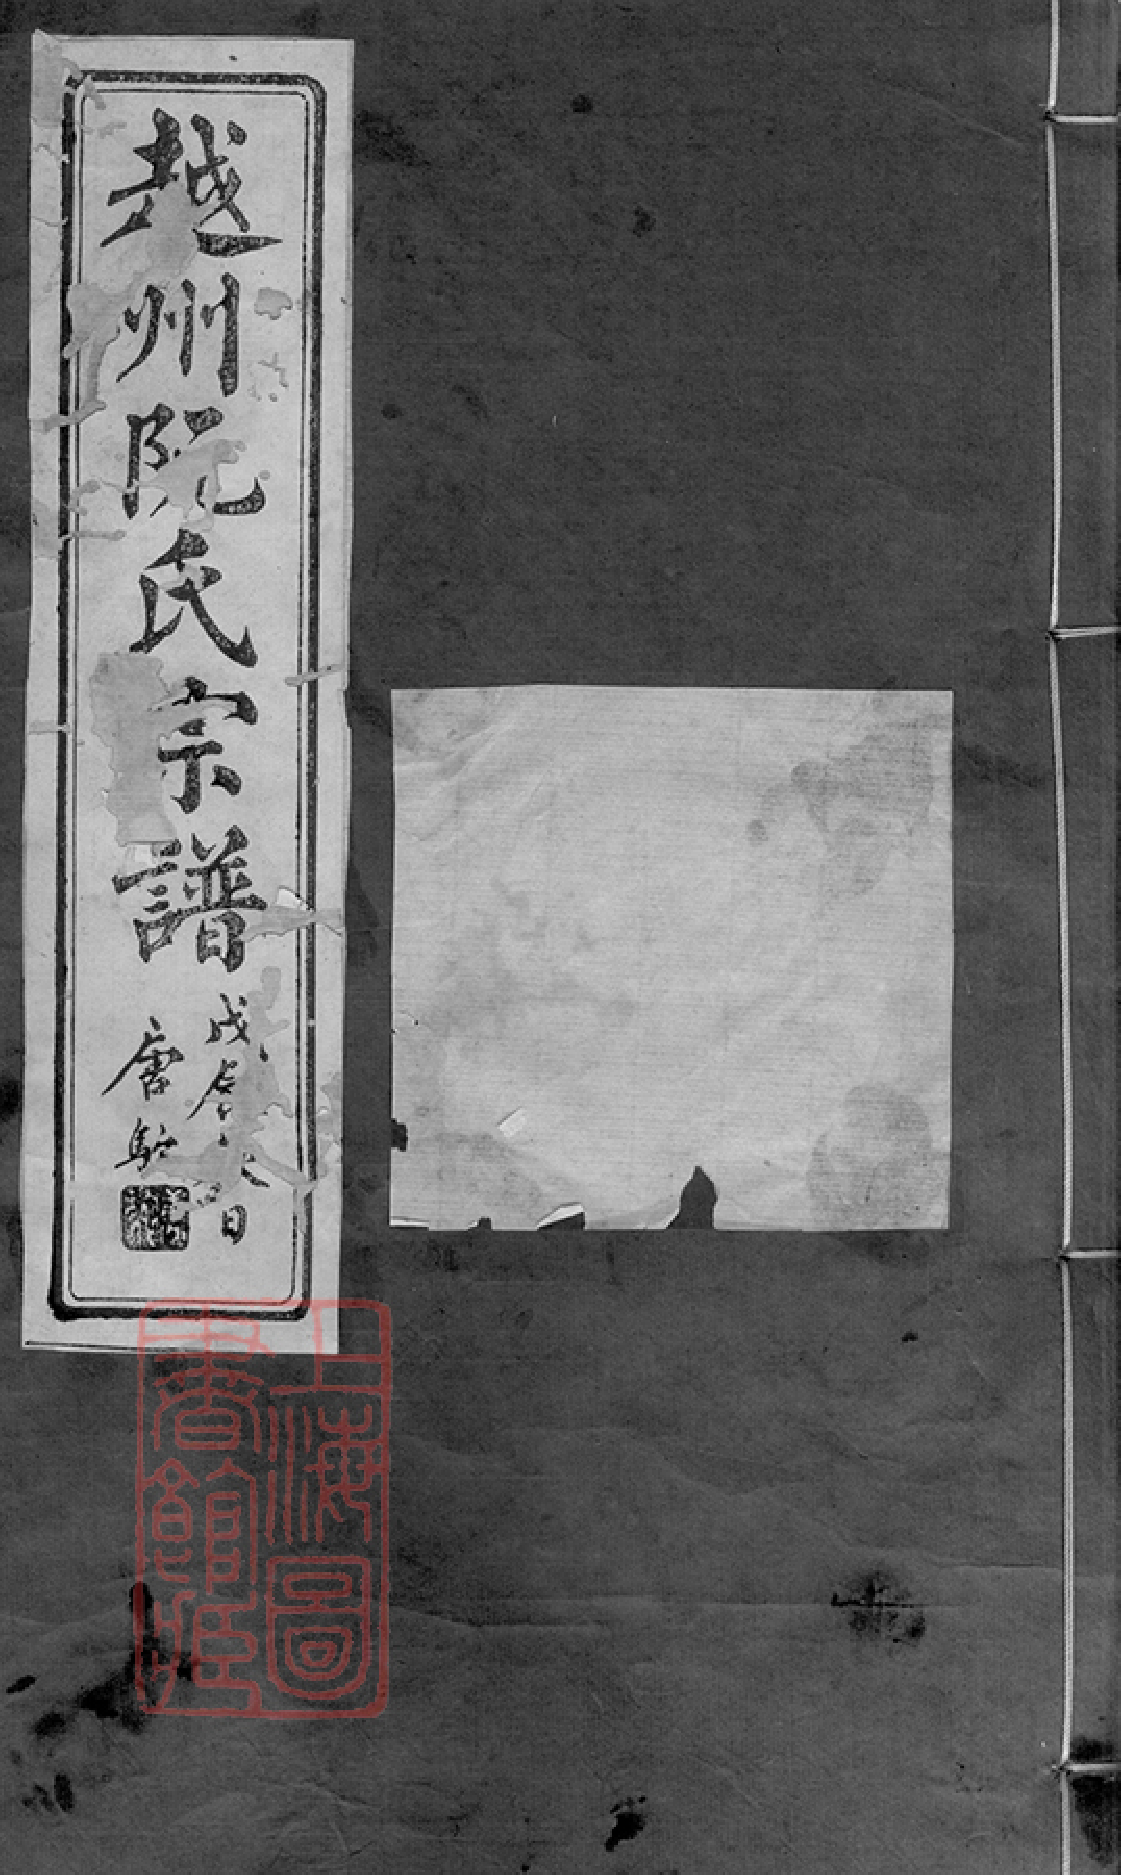 越州阮氏宗譜
戊辰
日
唐駝
上海圖
書館藏